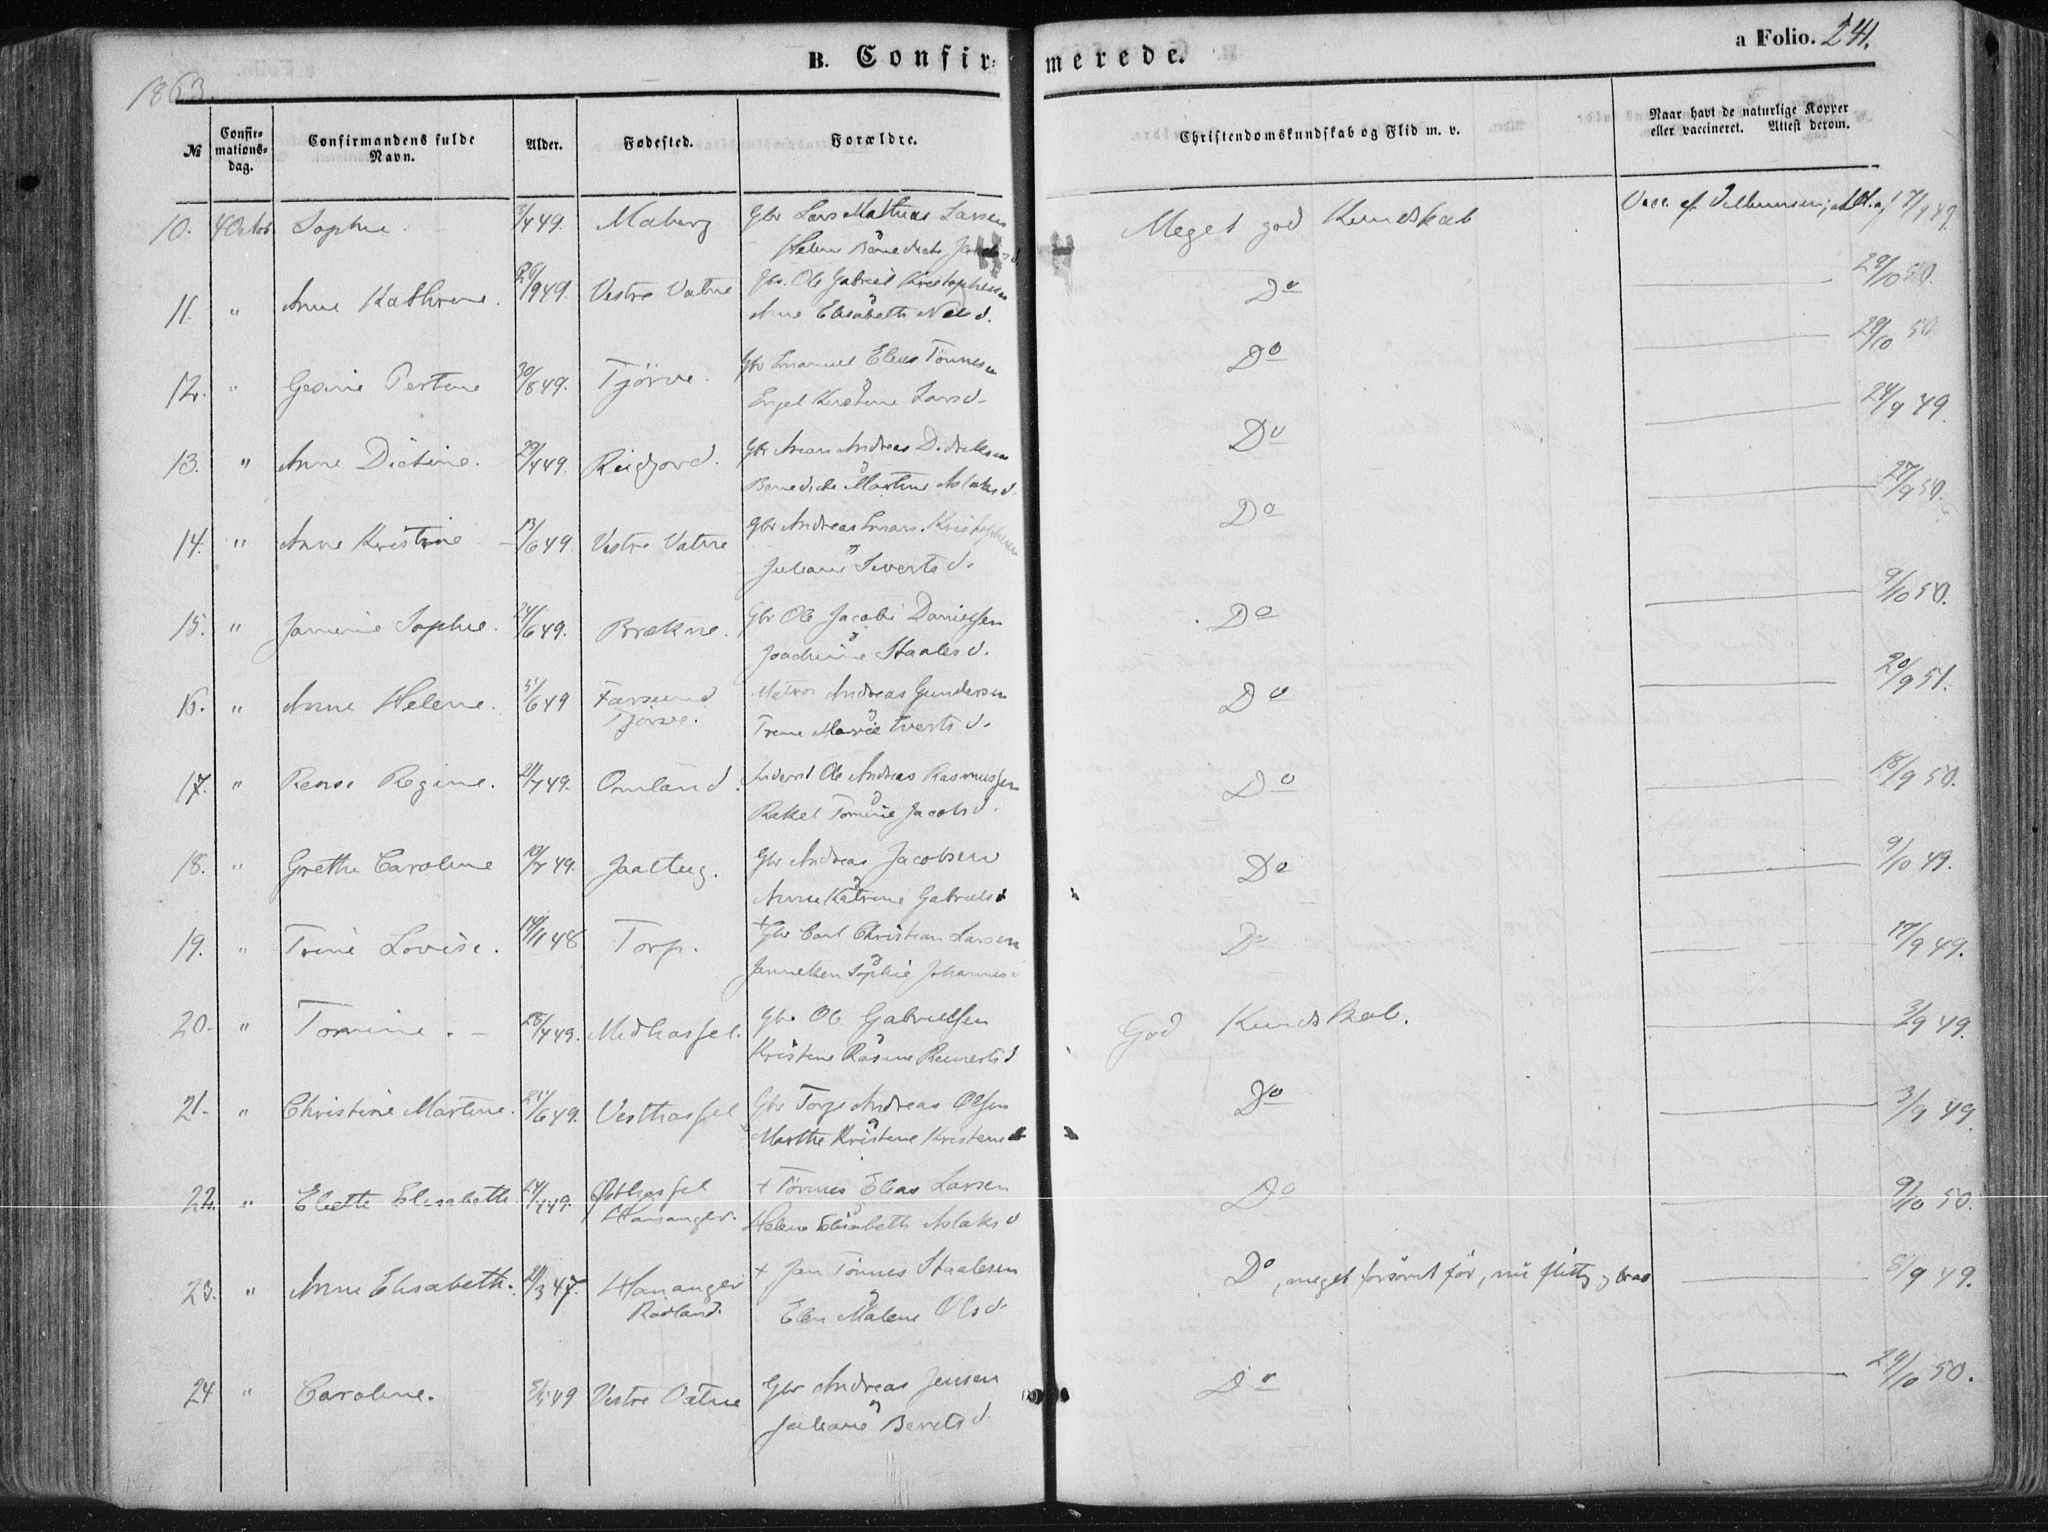 B. Confirmerede.
a Folio. 241.
1863.
№
Confirmations-dag.
Confirmandens fulde Navn.
Alder.
Fødested.
Forældre.
Christendomskundskab og Flid m. v.
Naar havt de naturlige Kopper eller vaccineret. Attest derom.
10. 4 Octob. Sophie. 3/4 49. Maberg Gbr Lars Mathias Larsen Meget god Kundskab Vacc. af 17/9 49.
Helene Benedicte
11. " Anne Kathrine. 26/9 49. Vestre Vatne Gbr. Ole Gabriel Kristophersen Do 29/10 50.
Anne Elisabeth Nels d.
12. " Gesine Pertine 30/8 49. Tjörve. Gbr Emanuel Elias Tönnesen Do 29/10 50
Engel Kirstine Lars d.
13. " Anne Dictine. 29/4 49. Reidjord. Gbr Andreas Didriksen Do 24/9 49.
Benedicte Martine Aslaks d.
14. " Anne Kristine 13/6 49 Vestre Vatne Gbr Andreas Kristophersen Do 27/9 50.
Juliane Siverts d.
15. " Jamine Sophie. 24/6 49. Brækne. Gbr Ole Jacob Danielsen Do 9/10 50.
Joachime Staales d.
16. " Anne Helene. 5/6 49 Farsund Matros Andreas Gundersen Do 20/9 51.
Tjörve. Trine Marie Everts d.
17. " Regine. 21/7 49. Omland. Ole Andreas Rasmussen Do 18/9 50.
Rakel Tomine Jacobs d.
18. " Grethe Caroline 19/7 49. Jaattug. Gbr Andreas Jacobsen Do 9/10 49.
Anne Katrine Gabriels d
19. " Trine Lovise. 14/11 48 Torp. + Gbr Carl Christian Larsen Do 17/9 49.
Janneken Sophie Johannes d
20. " Tomine. 28/4 49. Midhassel. Gbr Ole Gabrielsen God Kundskab. 3/9 49.
Kristine Rasine Reinerts d
21. " Christine Martine. 24/6 49. Vesthassel Gbr Torje Andreas Olsen Do 3/9 49.
Marthe Kristine Kristens d
22. " Elisabeth 49. Østhassel + Tönnes Elias Larsen Do 9/10 50.
Hananger. Helene Elisabeth Aslaks d
23. " Anne Elisabeth. 21/3 47. Hananger + Jan Tönnes Staalesen Do, meget forsömt för, nu flittig og brav 5/9 49.
Rödland. Elen Malene Ols d.
24 " Caroline. 49 Vestre Vatne Gbr Andreas Jensen Do 29/10 50.
Juliane Bernts d.